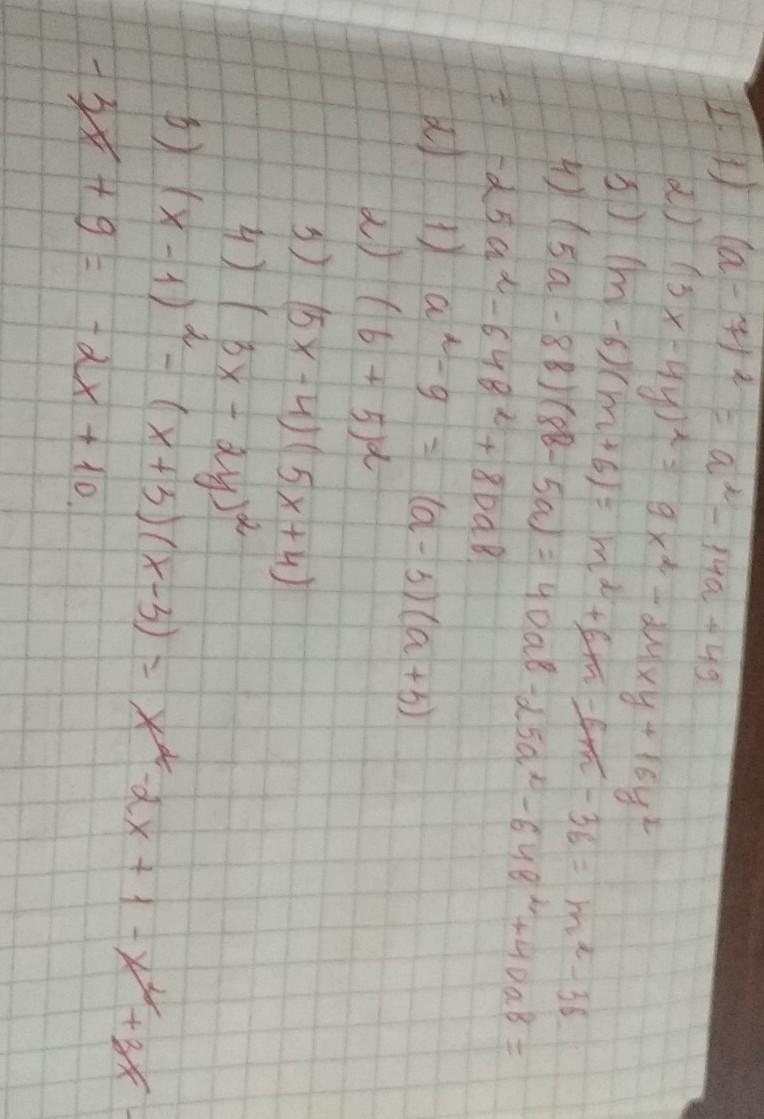 1. 1) (a - 7)² = a² - 14a + 49
2) (3x - 4y)² = 9x² - 24xy + 16y²
3) (m - 6)(m + 6) = m² + 6m - 6m - 36 = m² - 36
4) (5a - 8b)(8b - 5a) = 40ab - 25a² - 64b² + 40ab =
= -25a² - 64b² + 80ab
2) 1) a² - 9 = (a - 3)(a + 3)
2) (b + 5)²
3) (5x - 4)(5x + 4)
4) (3x - 2y)²
3) (x - 1)² - (x + 3)(x - 3) = x² - 2x + 1 - x² + 3x -
- 3x + 9 = -2x + 10.